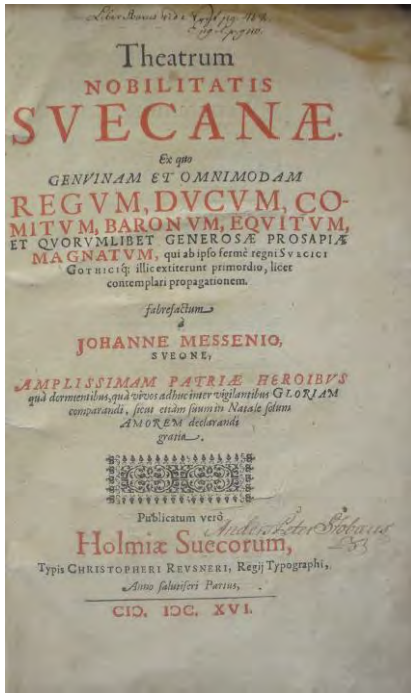 Liber Rarus vid
Theatrum
NOBILITATIS
SVECANÆ.
Ex quo
GENVINAM ET OMNIMODAM
REGVM, DVCVM, CO-
MITVM, BARONVM, EQVITVM,
ET QVORVMLIBET GENEROSÆ PROSAPIÆ
MAGNATVM, qui ab ipso fermè regni SVECICI
GOTHICIq́; illic extiterunt primordio, licet
contemplari propagationem.
fabrefactum
à
JOHANNE MESSENIO,
SVEONE,
AMPLISSIMAM PATRIÆ HEROIBVS
quà dormientibus, quà vivos adhuc inter vigilantibus GLORIAM
comparandi, sicut etiàm suum in Natale solum
AMOREM declarandi
gratia.
Publicatum verò
Anders Peter Stobæus
Holmiæ Suecorum,
Typis CHRISTOPHERI REVSNERI, Regij Typographi,
Anno salutiferi Partus,
CIↃ. IↃC. XVI.